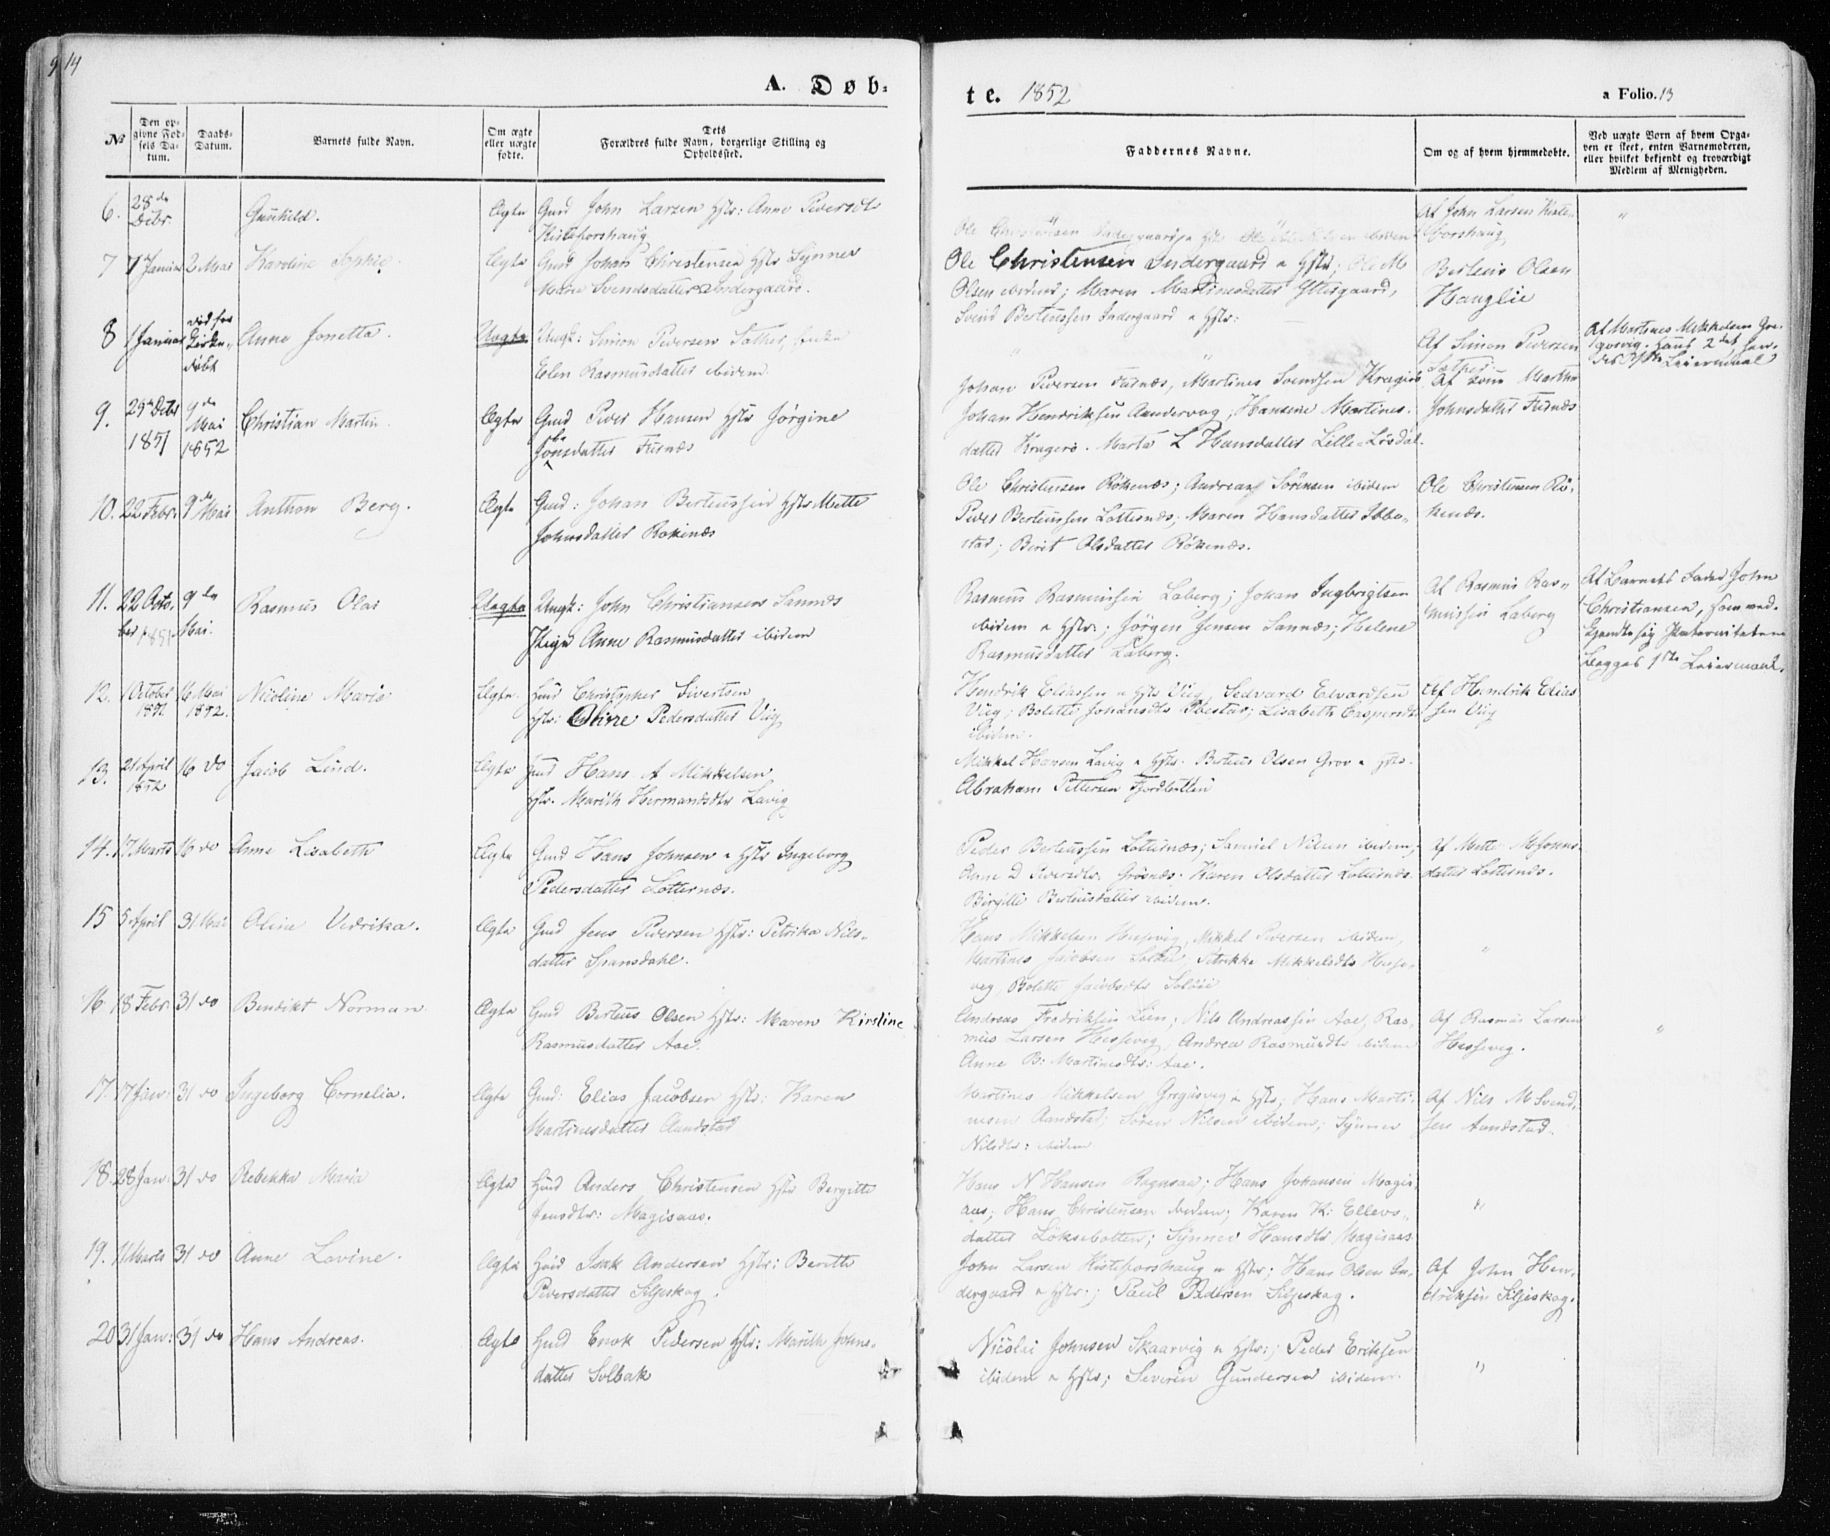 9 14
A. Døb-
te. 1852
a Folio. 13
№
Den op-
givne Fød-
sels Da-
tum.
Daabs-
Datum.
Barnets fulde Navn.
Om ægte
eller uægte
fødte.
Dets
Forældres fulde Navn, borgerlige Stilling og
Opholdssted.
Faddernes Navne.
Om og af hvem hjemmedøbte.
Ved uægte Børn af hvem Opga-
ven er skeet, enten Barnemoderen,
eller hvilket bekjendt og troværdigt
Medlem af Menigheden.
6. 28de Debr. Gunhild. Ægte Gmd John Larsen Hstr: Anne Pedersdtr
Kisteforshaug
Af John Larsen Kiste-
forshaug
"
7 7 Januar 2 Mai Karoline Sophie. Ægte Gmd Johan Christensen Hstr Synnev
Marie Svendsdatter Indergaard.
Ole Christensen Indergaard & Hstr; Ole M
Olsen ibidem; Maren Martinusdatter Yttergaard,
Svend Berteussen Indergaard & Hstr:
Berteus Olsen
Hauglie
8 1 Januar Anne Jonetta. Uægte Ungk: Simon Pedersen Sæther,
Elen Rasmusdatter ibidem
"
Af Simon Pedersen
Sæther.
Af Martines Mikkelsen Gre-
gusvig. Hans 2det hen-
des 1ste Leiermaal
9. 29de Debr 1851 9de Mai 1852 Christian Martin. Ægte Gmd Peder Hansen Hstr Jørgine
Jonsdatter Furnæs
Johan Pedersen Furnæs, Martines Svendsen Kragerø,
Johan Henriksen Aandervag, Hansine Martines-
datter Kragerø. Marta L Hansdatter Lille-Løsdal.
Af Martha
Johnsdatter Furnæs
10. 22 Febr. 9de Mai Anthon Berg. Ægte Gmd: Johan Berteussen Hstr Mette
Johnsdatter Rokenæs
Ole Christensen Røkenæs; Andreas Sørensen ibidem
Peder Berteussen Lotternæs; Maren Hansdatter Ibbe-
stad; Berit Olsdatter Røkenæs.
Ole Christensen Rø-
kenæs.
11. 22 Octo-
ber 1851 9de Mai. Rasmus Olai Uægte Ungk: John Christiansen Sannæs
Pige Anne Rasmusdatter ibidem
Rasmus Rasmussen Laberg; Johan Ingbrigtsen
ibidem & Hstr.; Jørgen Jensen Sannæs; Helene
Rasmusdatter Laberg.
Af Rasmus Ras-
mussen Laberg
Af Barnets Fader John
Christiansen, som ved-
kjendte sig Paterniteten
Begges 1ste Leiermaal.
12. 1 October 1851 16 Mai 1852. Nicoline Marie Ægte. Hmd Christopher Sivertsen
Hstr: Oline Pedersdatter Viig
Hendrik Eliassen & Hstr Viig, Sedvard Edvardsen
Viig; Bolette Johansdtr Ibestad; Lisabeth Caspersdtr
ibidem.
Af Hendrik Elias
sen Viig
13. 21 April 1852 16 do Jacob Lind. Ægte Hmd Hans A Mikkelsen
Hstr. Marith Hermandsdtr Lavig
Mikkel Hansen Lavig & Hstr. Berteus Olsen Grov & Hstr.
Abraham Pettersen Fjordbotten
14. 17 Marts 16 do Anne Lisabeth Ægte Gmd Hans Johnsen & Hstr Ingeborg
Pedersdatter Lotternæs.
Peder Berteussen Lotternæs; Samuel Nilsen ibidem;
Anne D Pedersdtr. Grønæs. Karen Olsdatter Lotternæs
Birgitte Berteusdatter ibidem.
Af Mette M Johns-
datter Lotternæs.
15 5 April 31 Mai Oline Vedrika. Ægte Gmd Jens Pedersen Hstr: Petrika Nils-
datter Spansdahl.
Hans Mikkelsen Hessevig, Mikkel Pedersen ibidem,
Martines Jacobsen Soløie, Petrikke Mikkelsdtr Hesse-
vig, Bolette Jacobsdtr Soløie
"
16 18 Febr. 31 do Bendikt Norman. Ægte Gmd Berteus Olsen Hstr: Maren Kirstine
Rasmusdatter Aae.
Andreas Fredriksen Lien; Nils Andreassen Aae, Ras-
mus Larsen Hessevig, Andrea Rasmusdtr ibidem
Anne B: Martinesdtr: Aae.
Af Rasmus Larsen
Hessevig.
"
17. 17 Jan: 31 do Ingeborg Cornelia. Ægte Gmd: Elias Jacobsen Hstr: Karen
Martinesdatter Aandstad
Martines Mikkelsen Gregusvig & Hstr; Hans Marti-
nesen Aandstad; Søren Nilsen ibidem; Synnev
Nilsdtr: ibidem
Af Nils M Svend-
sen Aandstad.
18. 28 Jan: 31 do Rebekka Maria Ægte Hmd Anders Christensen Hstr Bergitte
Jensdtr: Magisaas.
Hans N Hansen Rognsaa; Hans Johansen Magis-
aas; Hans Christensen ibidem; Karen K: Ellevs-
datter Løksebotten; Synnev Hansdtr Magisaas
"
19. 11 Marts 31 do Anne Lavine. Ægte Hmd Isak Andersen Hstr: Berethe
Pedersdatter Siljeskog.
John Larsen Kisteforshaug & Hstr; Hans Olsen In-
dergaard & Hstr:; Paul Pedersen Siljeskog.
Af John Hen-
driksen Siljeskog.
20 31 Jan: 31 do Hans Andreas. Ægte Gmd Enok Pedersen Hstr: Marith Johns-
datter Solbak
Nicolai Johnsen Skaarvig & Hstr:; Peder Eriksen
ibidem & Hstr; Severin Gundersen ibidem.
"